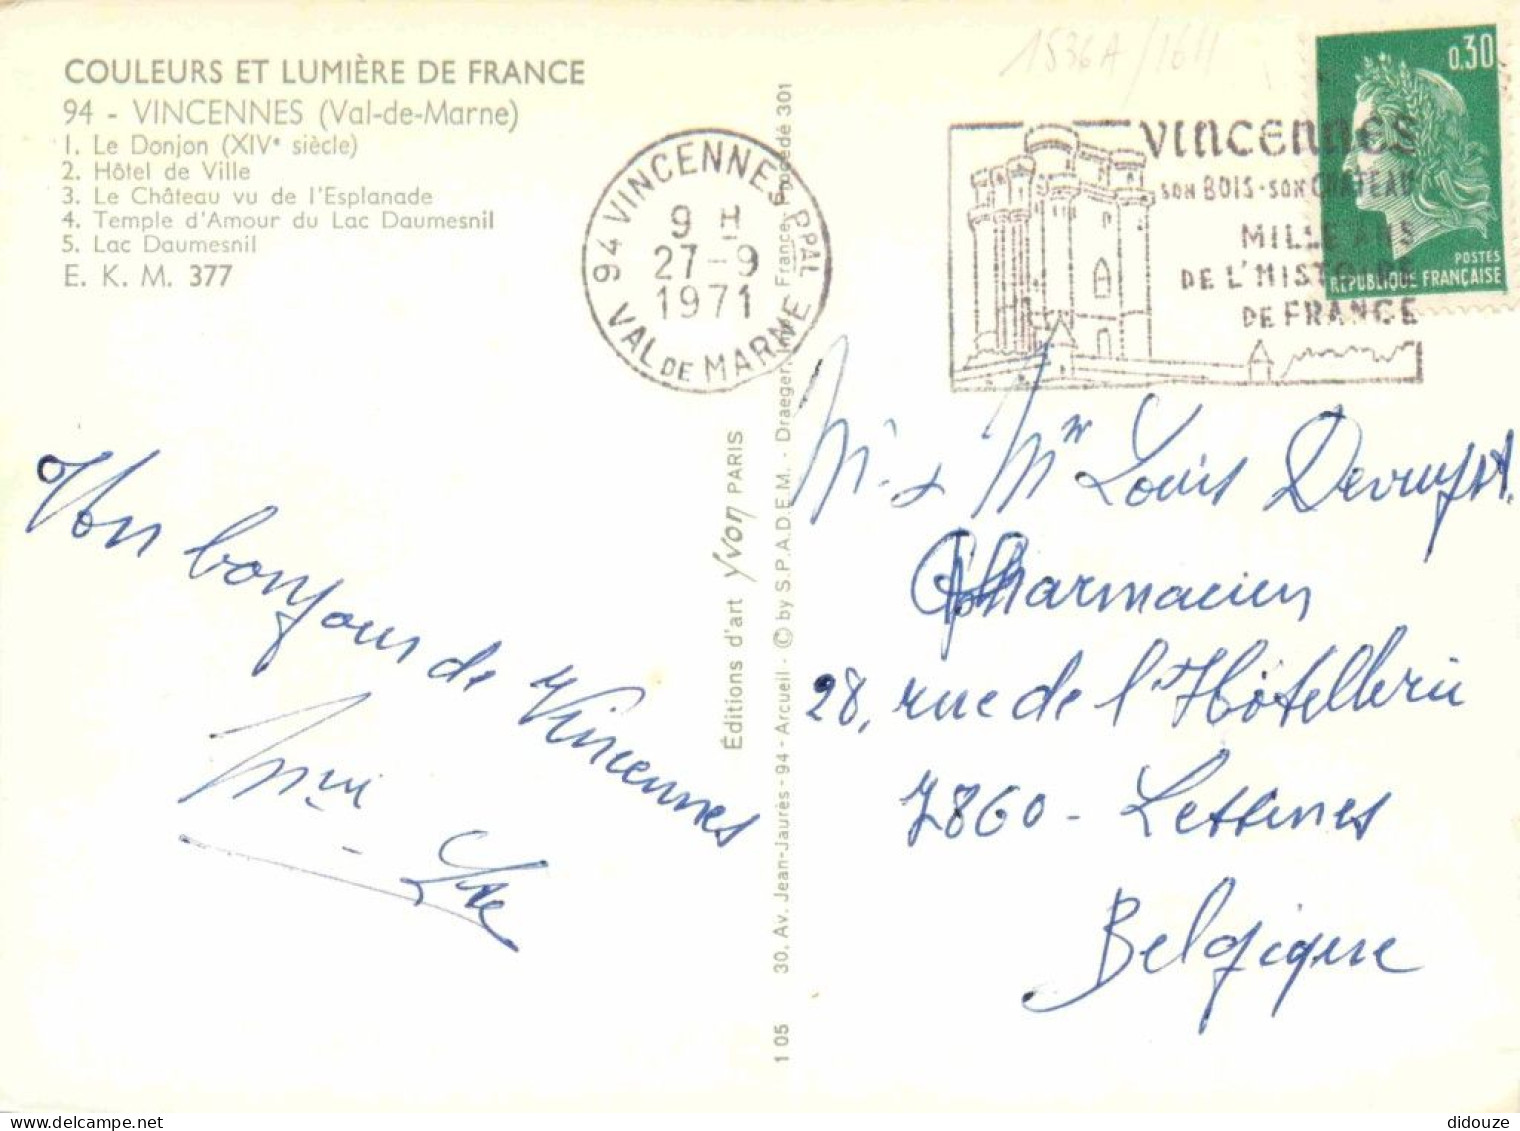 COULEURS ET LUMIÈRE DE FRANCE
94 - VINCENNES (Val-de-Marne)
1. Le Donjon (XIVe siècle)
2. Hôtel de Ville
3. Le Château vu de l'Esplanade
4. Temple d'Amour du Lac Daumesnil
5. Lac Daumesnil
E. K. M. 377
94 VINCENNES PPAL
9 H
27-9
1971
VAL DE MARNE
1536A/1611
VINCENNES
SON BOIS · SON CHATEAU
MILLE ANS
DE L'HISTOIRE
DE FRANCE
0,30
POSTES
RÉPUBLIQUE FRANÇAISE
Éditions d'art Yvon PARIS
105 30, Av. Jean-Jaurès - 94 - Arcueil - © by S.P.A.D.E.M. - Draeger, Imp. France, Procédé 301
Bon bonjour de Vincennes
Mr Louis
Pharmacien
28, rue de l'Hôtellerie
7860 - Lessines
Belgique
delcampe.net
didouze